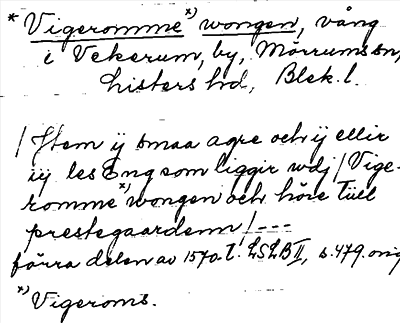 * Vigeromme x) wongen, vång
i Vekerum, by, Mörrums sn,
Listers hd, Blek. l.
/ Item ij smaa agre och ij eller
iij les Eng som liggir wdj / Vige-
romme x) wongen och höre tüll
prestegaardenn / ---
förra delen av 1570-t. LSLB II, s. 479. orig
x) Vigeroms.